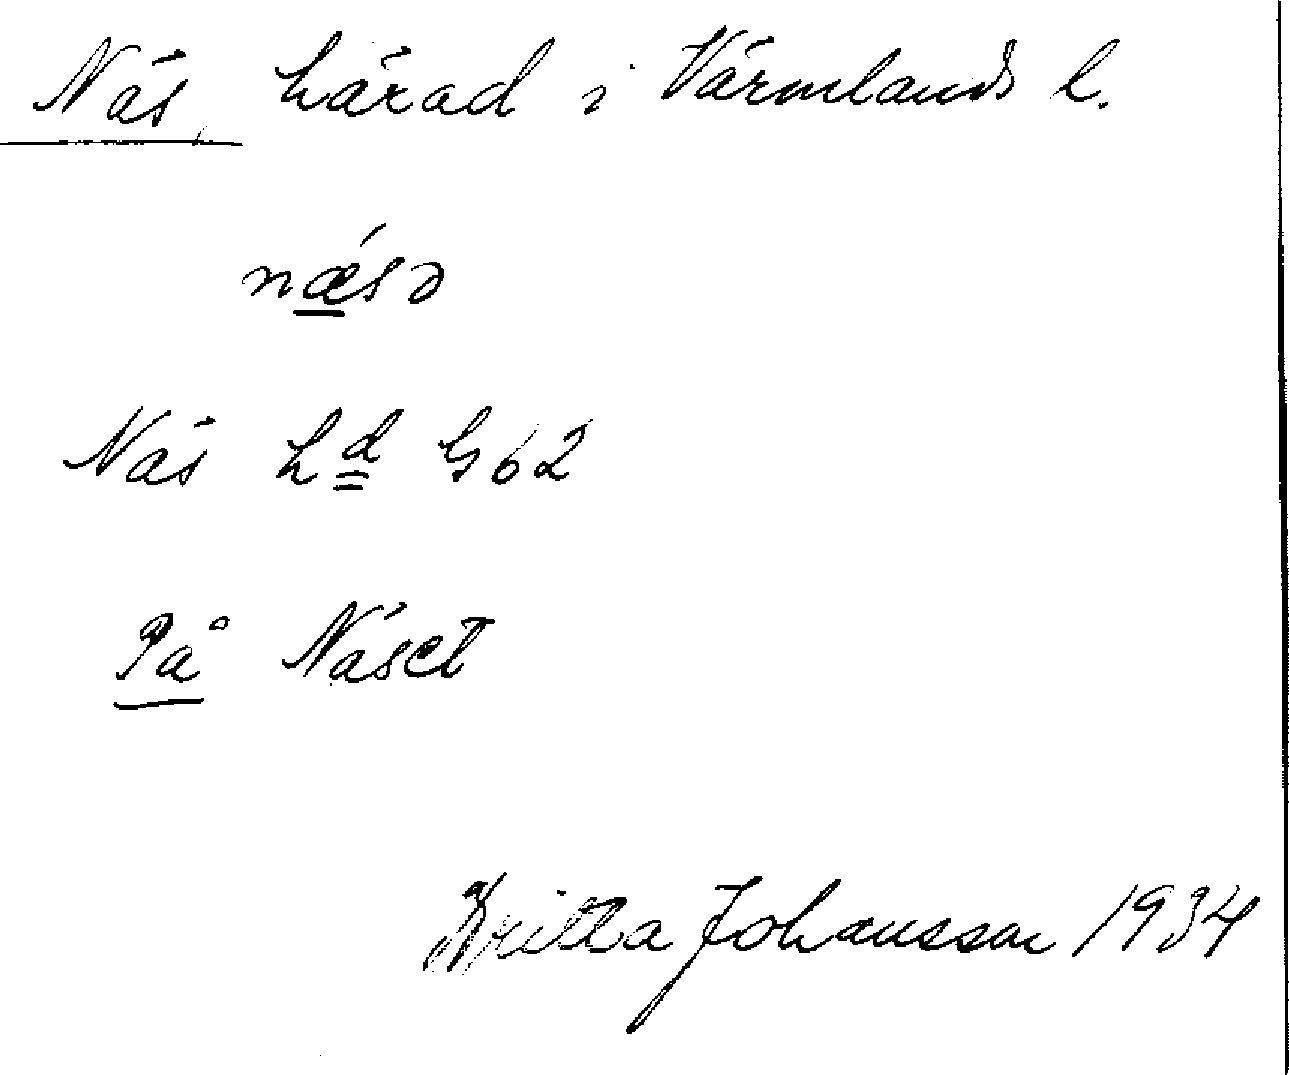 Näs härad i Värmlands l.
næ´sə
Näs hd G62
På Näset
Britta Johansson 1934